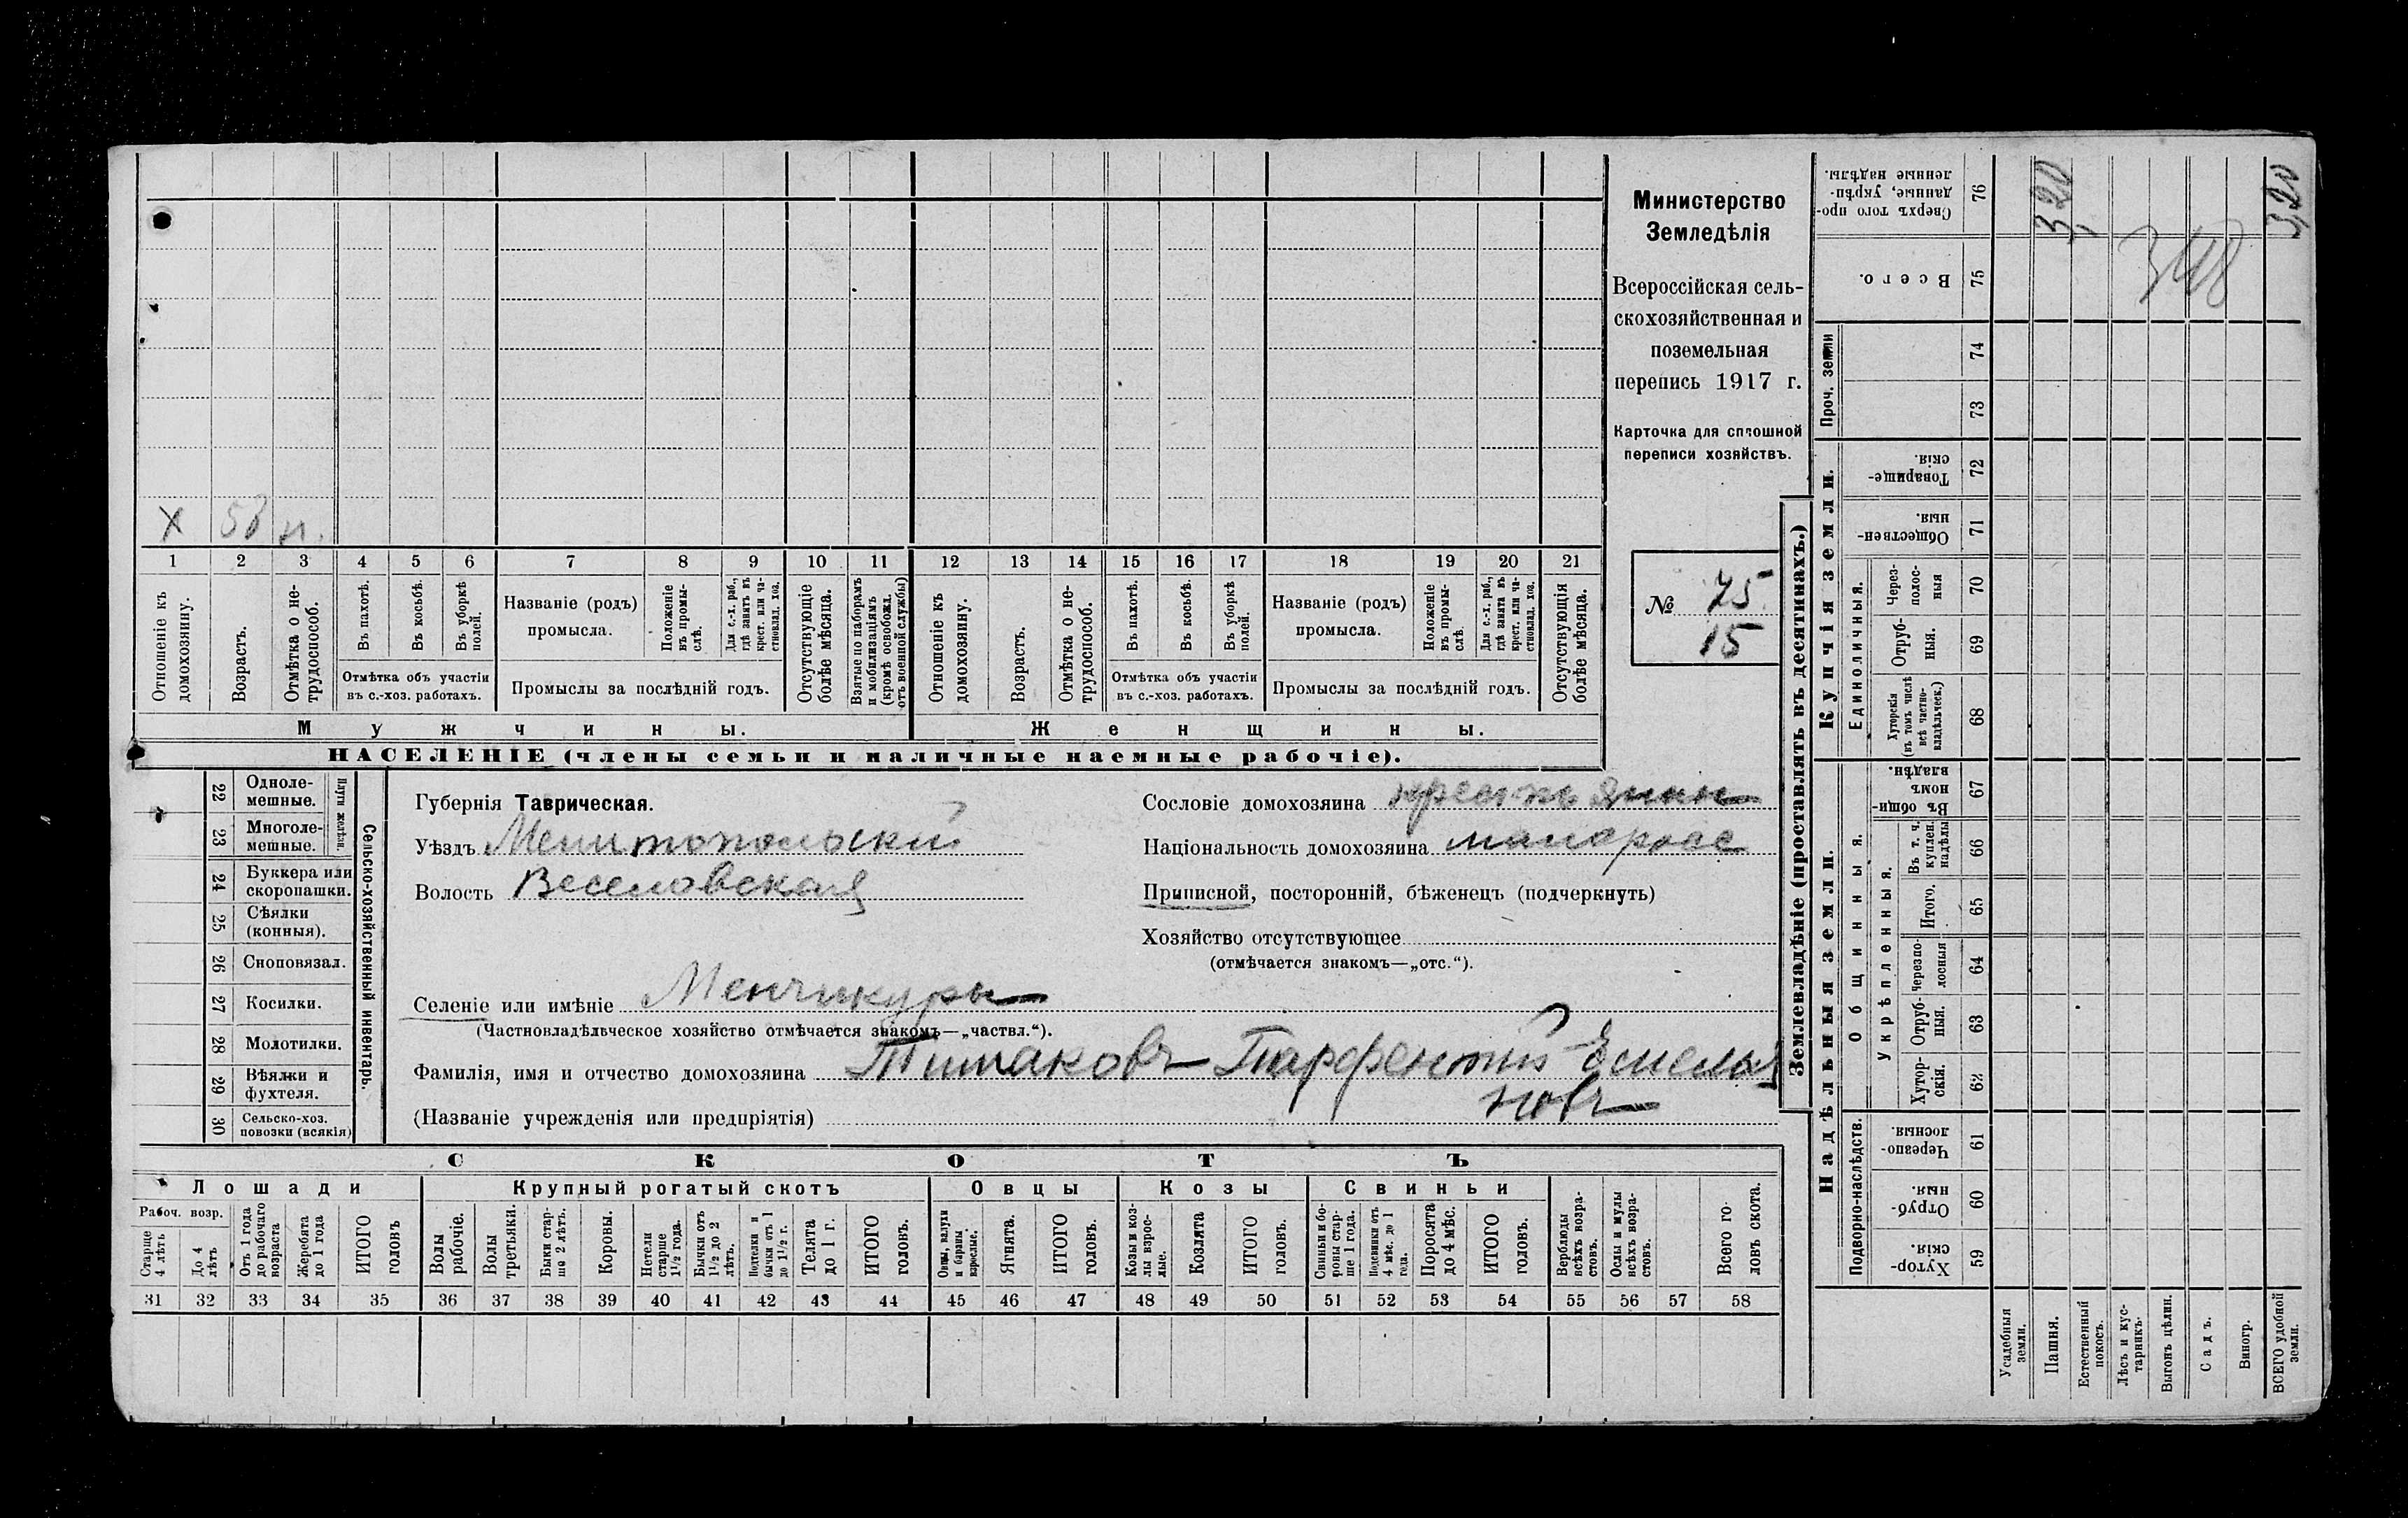 Министерство
Земледѣлія
Всероссійская сель-
скохозяйственная и
поземельная
перепись 1917 г.
Карточка для сплошной
переписи хозяйствъ.
№ 75
15
Х 58 н.
1 2 3 4 5 6 7 8 9 10 11 12 13 14 15 16 17 18 19 20 21
Отношеніе къ домохозяину.
Возрастъ.
Отмѣтка о не-трудоспособ.
Въ пахотѣ.
Въ косьбѣ.
Въ уборкѣ полей.
Отмѣтка объ участіи
въ с.-хоз. работахъ.
Названіе (родъ)
промысла.
Положеніе въ промы-слѣ.
Для с.-х. раб., гдѣ занятъ въ крест. или ча-стновлад. хоз.
Промыслы за послѣдній годъ.
Отсутствующіе болѣе мѣсяца.
Взятые по наборамъ и мобилизаціямъ (кромѣ освобожд. отъ военной службы)
Отношеніе къ домохозяину.
Возрастъ.
Отмѣтка о не-трудоспособ.
Въ пахотѣ.
Въ косьбѣ.
Въ уборкѣ полей.
Отмѣтка объ участіи
въ с.-хоз. работахъ.
Названіе (родъ)
промысла.
Положеніе въ промы-слѣ.
Для с.-х. раб., гдѣ занята въ крест. или ча-стновлад. хоз.
Промыслы за послѣдній годъ.
Отсутствующія болѣе мѣсяца.
Мужчины.
Женщины.
НАСЕЛЕНІЕ (члены семьи и наличные наемные рабочіе).
22 Одноле-мешные.
23 Многоле-мешные.
Плуги желѣзн.
24 Буккера или скоропашки.
25 Сѣялки (конныя).
26 Сноповязал.
27 Косилки.
28 Молотилки.
29 Вѣялки и фухтеля.
30 Сельско-хоз. повозки (всякія)
Сельско-хозяйственный инвентарь.
Губернія Таврическая.
Уѣздъ Мелитопольскій
Волость Веселовская
Селеніе или имѣніе Менчикуры
(Частновладѣльческое хозяйство отмѣчается знакомъ—„частвл.“).
Фамилія, имя и отчество домохозяина Титаковъ Парфентій Емелья
новъ
(Названіе учрежденія или предпріятія)
Сословіе домохозяина крестьянин
Національность домохозяина малоросс
Приписной, посторонній, бѣженецъ (подчеркнуть)
Хозяйство отсутствующее
(отмѣчается знакомъ—„отс.“).
СКОТЪ
Лошади
Крупный рогатый скотъ
Овцы
Козы
Свиньи
Рабоч. возр.
Старше 4 лѣтъ
До 4 лѣтъ
Отъ 1 года до рабочаго возраста
Жеребята до 1 года
ИТОГО головъ
Волы рабочіе.
Волы третьяки.
Быки стар-ше 2 лѣтъ.
Коровы.
Нетели старше 1½ года.
Бычки отъ 1½ до 2 лѣтъ.
Подтелки и бычки отъ 1 до 1½ г.
Телята до 1 г.
ИТОГО головъ.
Овцы, валухи и бараны взрослые.
Ягнята.
ИТОГО головъ.
Козы и коз-лы взрос-лые.
Козлята
ИТОГО головъ.
Свиньи и бо-ровы стар-ше 1 года.
Подсвинки отъ 4 мѣс. до 1 года.
Поросята до 4 мѣс.
ИТОГО головъ.
Верблюды всѣхъ возра-стовъ.
Ослы и мулы всѣхъ возра-стовъ.
Всего го-ловъ скота.
31 32 33 34 35 36 37 38 39 40 41 42 43 44 45 46 47 48 49 50 51 52 53 54 55 56 57 58
Землевладѣніе (проставлять въ десятинахъ.)
Надѣльныя земли.
Купчія земли.
Проч. земли
Подворно-наслѣдств.
Общинныя.
Укрѣпленныя.
Единоличныя.
Хутор-скія. 59
Отруб-ныя. 60
Черезпо-лосныя. 61
Хутор-скія. 62
Отруб-ныя. 63
Черезпо-лосныя 64
Итого. 65
Въ т. ч. куплен. надѣлы 66
Въ общи-номъ владѣн. 67
Хуторскія (въ томъ числѣ всѣ частно-владѣльческ.) 68
Отруб-ныя. 69
Через-полос-ныя 70
Обществен-ныя. 71
Товарище-скія. 72
73
74
Всего. 75
Сверхъ того про-данные, укрѣп-ленные надѣлы. 76
Усадебныя земли.
Пашня.
Естественный покосъ.
Лѣсъ и кус-тарникъ.
Выгонъ цѣлин.
Садъ.
Виногр.
ВСЕГО удобной земли.
3,20
348
3,20